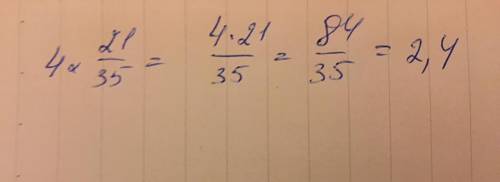 4 × 21/35 = 4·21/35 = 84/35 = 2,4